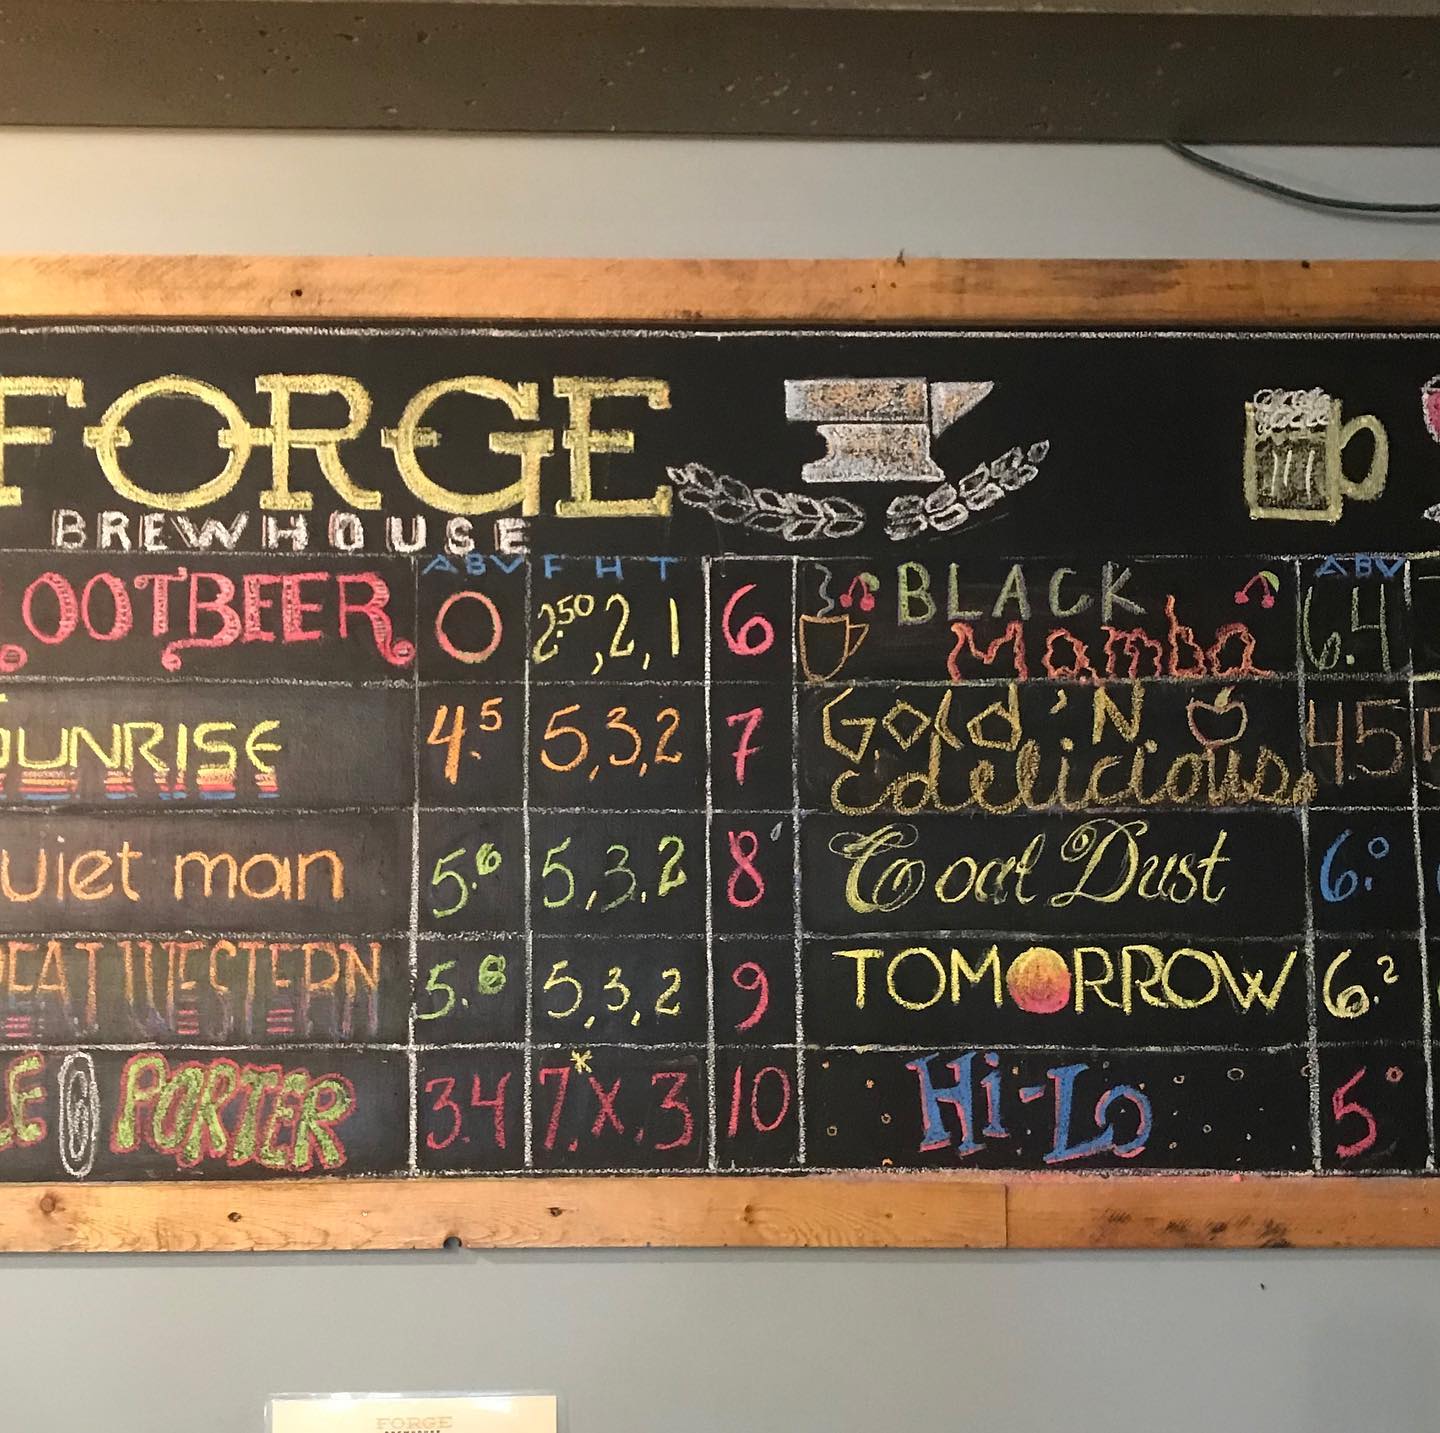 FORGE
BREWHOUSE
ABV F H T
OOTBEER 0 2.50, 2, 1
SUNRISE 4.5 5, 3, 2
uiet man 5.6 5, 3, 2
EAT WESTERN 5.8 5, 3, 2
LE PORTER 3.4 7*. X. 3
ABV
6 BLACK Mamba 6.4
7 Gold 'N delicious 4.5
8 Coal Dust 6.0
9 TOMORROW 6.2
10 Hi-Lo 5.0
FORGE